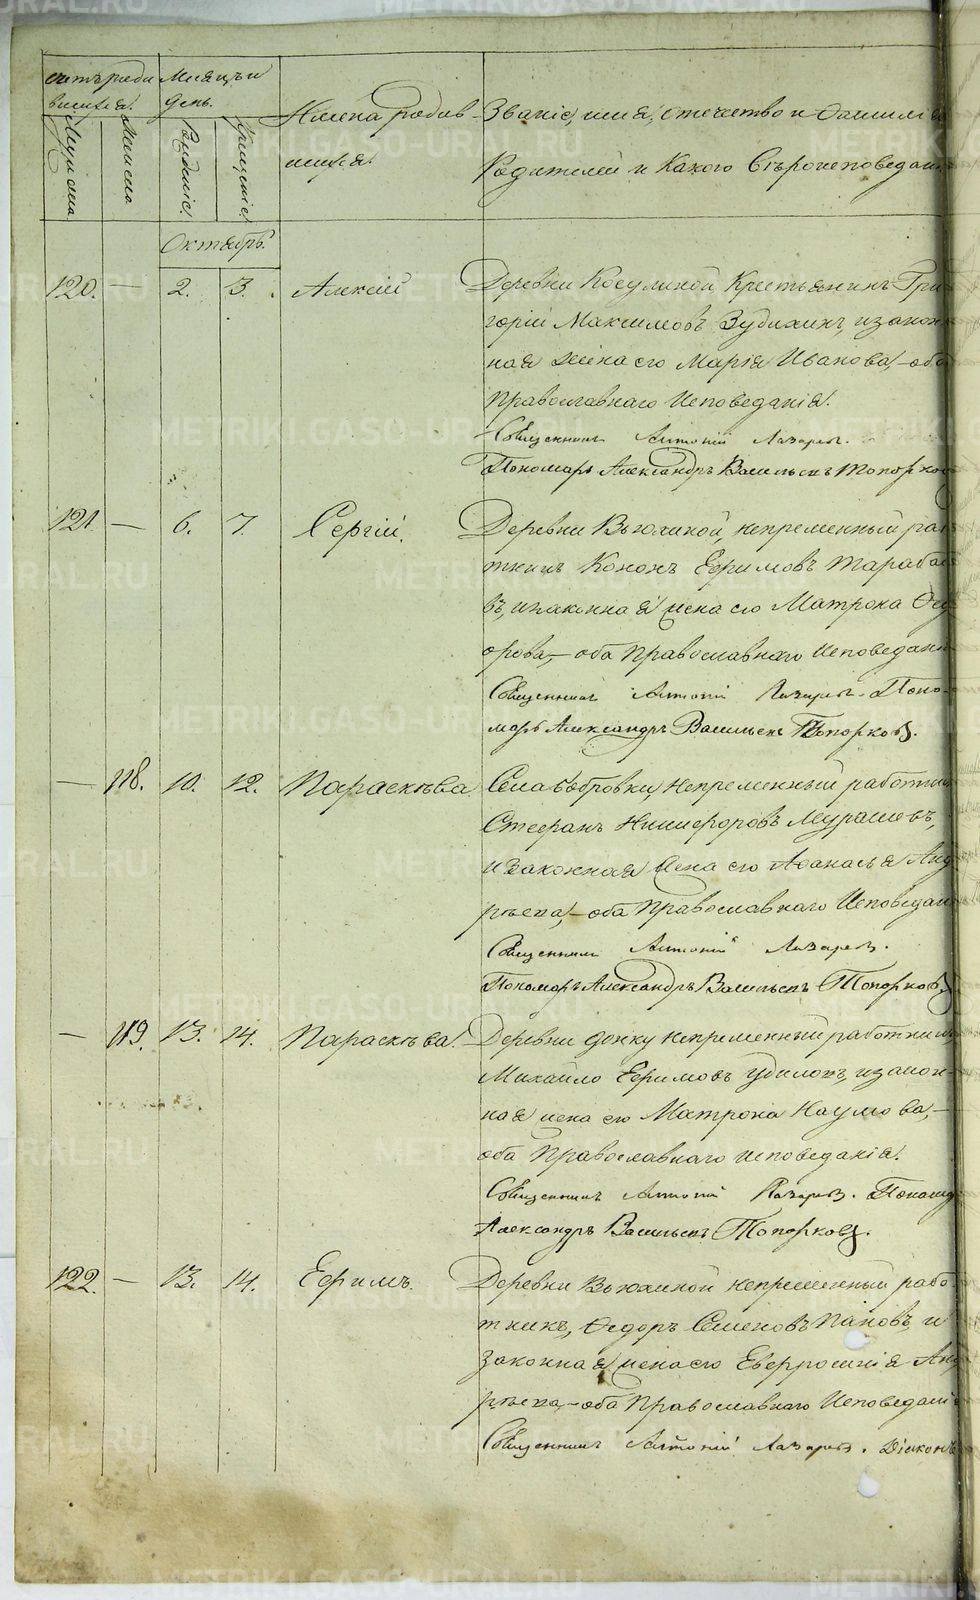 счетъ роди
вшихся.
Мѣсяцъ и
день.
Имена родив
шихся.
Званіе, имя, отечество и Фамилія
Родителей и какого Вѣроисповѣдан
Мужеска
Женска
Рожденіе.
Крещеніе.
Октябрь.
120. — 2. 3. Алексій Деревни Косулиной Крестьянинъ Гри
горій Максимовъ Зудихинъ, и закон
ная жена его Марія Иванова, — оба
Православнаго Исповеданія.
Священникъ Антоній Лазаревъ.
Пономарь Александръ Васильевъ Топорков
121 — 6. 7. Сергій. Деревни Вьюхиной, непременный раб
тникъ Кононъ Ефимовъ Тарабае
въ, и законная жена его Матрона Ѳед
орова, — оба Православнаго Исповедан
Священникъ Антоній Лазаревъ. Поно-
марь Александръ Васильевъ Топорковъ.
— 118. 10. 12. Параскѣва. Села Бобровки, Непременный работник
Стефанъ Никифоровъ Мурашевъ,
и законная Жена его Афанасья Анд
рѣева, — оба Православнаго Исповедан
Священникъ Антоній Лазаревъ.
Пономарь Александръ Васильевъ Топорковъ.
— 119. 13. 14. Параскѣва. Деревни непременный работникъ
Михайло Ефимовъ Удиловъ, и закон-
ная жена его Матрона Наумова, —
оба Православнаго исповеданія.
Священникъ Антоній Лазаревъ. Пономарь
Александръ Васильевъ Топорковъ.
122. — 13. 14. Ефимъ. Деревни Вьюхиной непременный рабо-
тникъ, Ѳедоръ Семеновъ Пановъ, и
законная жена его Евфросинія Анд
рѣева, — оба Православнаго Исповедані
Священникъ Антоній Лазаревъ. Діаконъ
METRIKI.GASO-URAL.RU